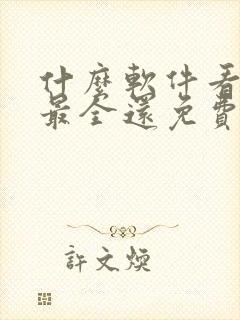 什麼軟件看
最全還免費
許文煥